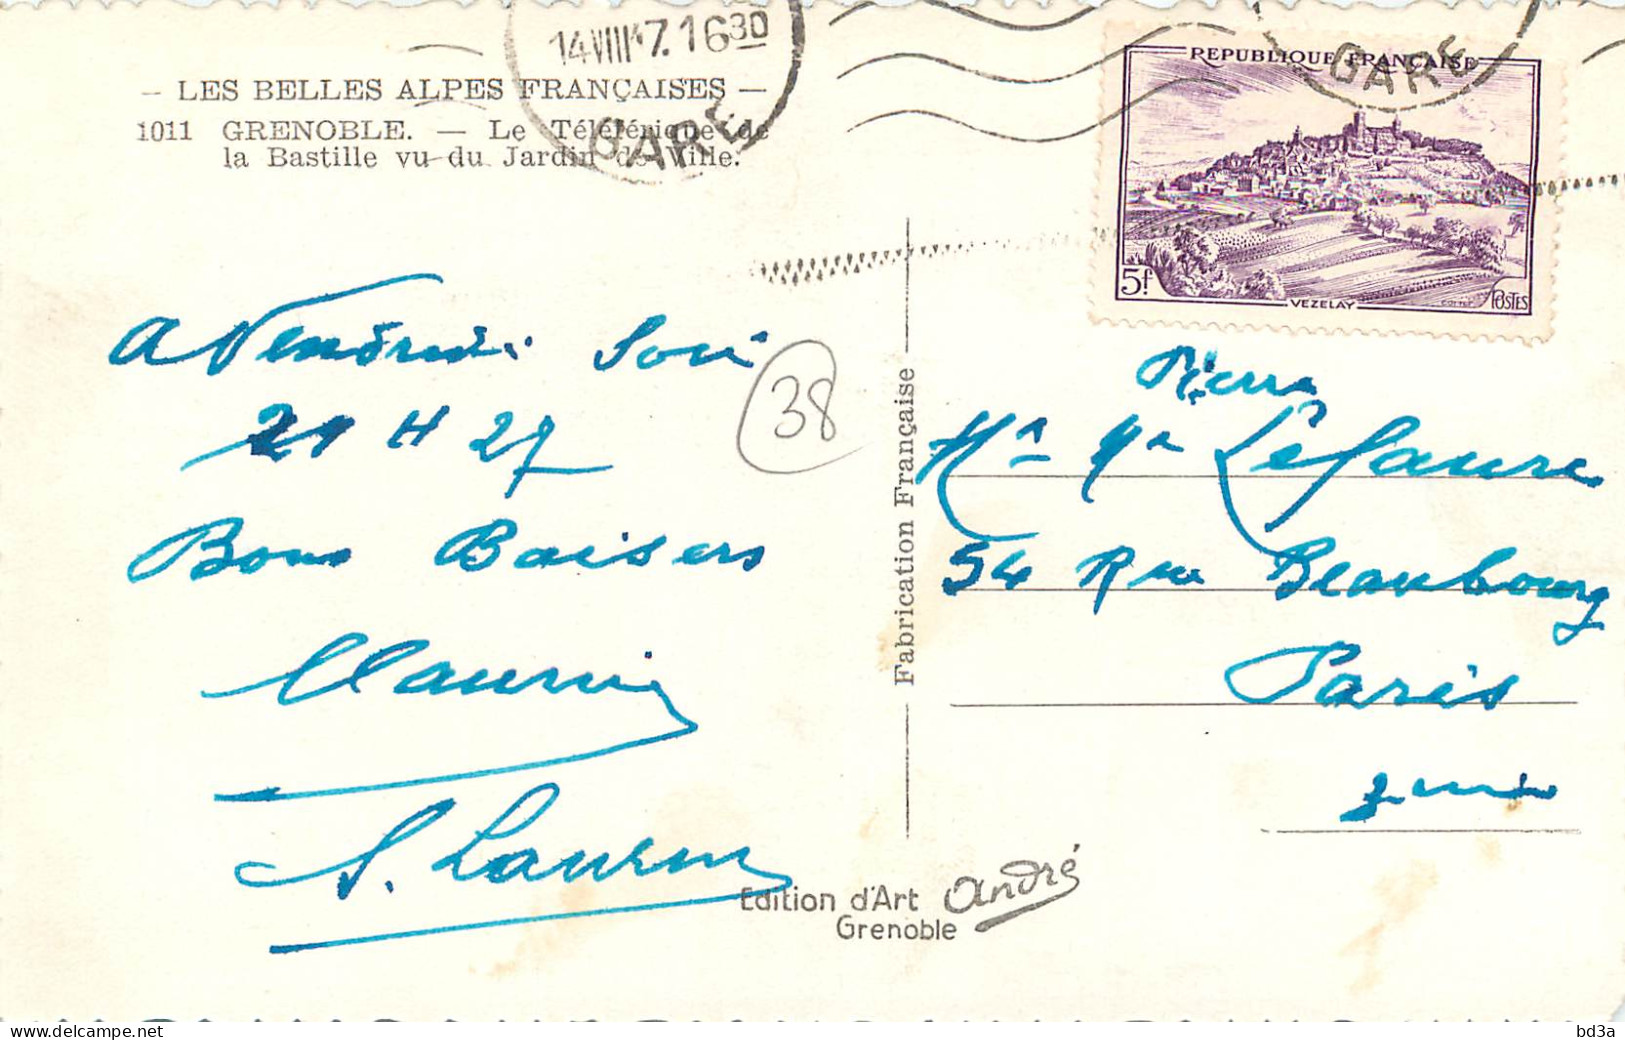 14 VIII 47. 16 30
GARE
— LES BELLES ALPES FRANÇAISES —
1011 GRENOBLE. — Le Téléférique de
la Bastille vu du Jardin de Ville.
REPUBLIQUE FRANÇAISE
GARE
5f
VEZELAY
POSTES
A Vendredi Soir
21 H 27
Bons Baisers
38
Fabrication Française
Pierre
Mr Me Lefaure
54 Rue Beaubourg
Paris
3eme
Edition d'Art André
Grenoble
bd3a